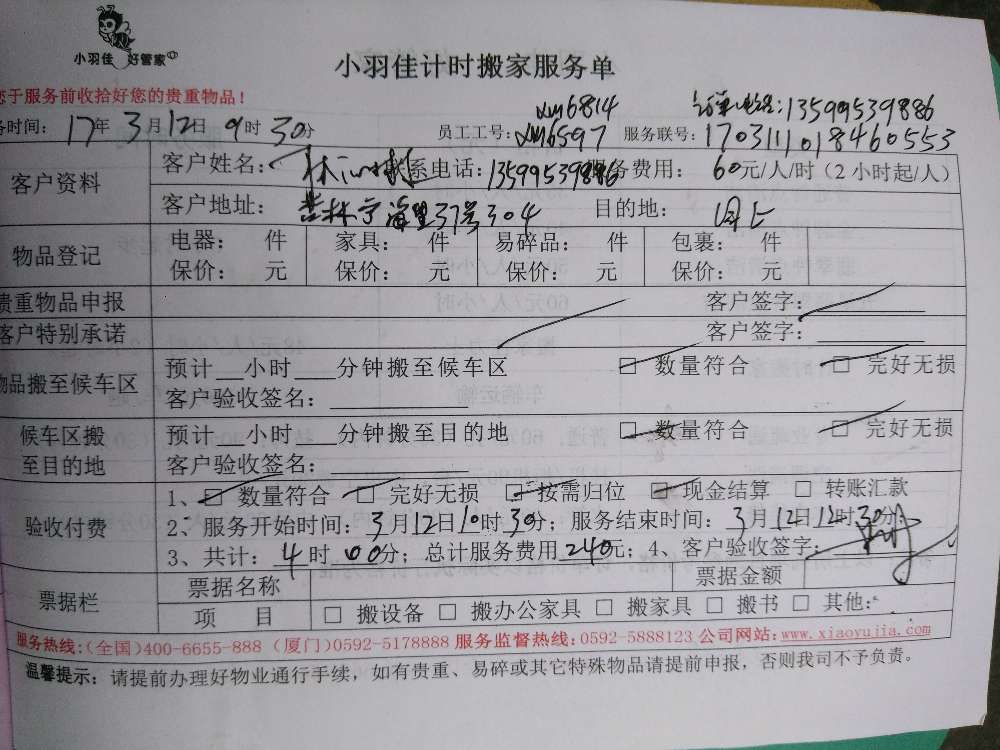 小羽佳 好管家
小羽佳计时搬家服务单
您于服务前收拾好您的贵重物品！
XM6814 订单电话:13599539886
务时间： 17年3月12日9时30分 员工工号：XM6597 服务联号：1703111018460553
客户资料 客户姓名： 林 系电话：13599539886 务费用： 60元/人/时（2小时起/人）
客户地址： 海里37号304 目的地：
物品登记 电器： 件 家具： 件 易碎品： 件 包裹： 件
保价： 元 保价： 元 保价： 元 保价： 元
贵重物品申报 客户签字：
客户特别承诺 客户签字：
物品搬至候车区 预计__小时___分钟搬至候车区 □ 数量符合 □ 完好无损
客户验收签名：
候车区搬至目的地 预计__小时___分钟搬至目的地 □ 数量符合 □ 完好无损
客户验收签名：
验收付费 1、□ 数量符合 □ 完好无损 □ 按需归位 □ 现金结算 □ 转账汇款
2、服务开始时间：3月12日10时30分；服务结束时间：3月12日12时30分
3、共计：4时00分；总计服务费用240元；4、客户验收签字：
票据栏 票据名称 票据金额
项 目 □ 搬设备 □ 搬办公家具 □ 搬家具 □ 搬书 □ 其他：
服务热线:(全国)400-6655-888 (厦门)0592-5178888 服务监督热线：0592-5888123 公司网站:www.xiaoyujia.com
温馨提示：请提前办理好物业通行手续，如有贵重、易碎或其它特殊物品请提前申报，否则我司不予负责。